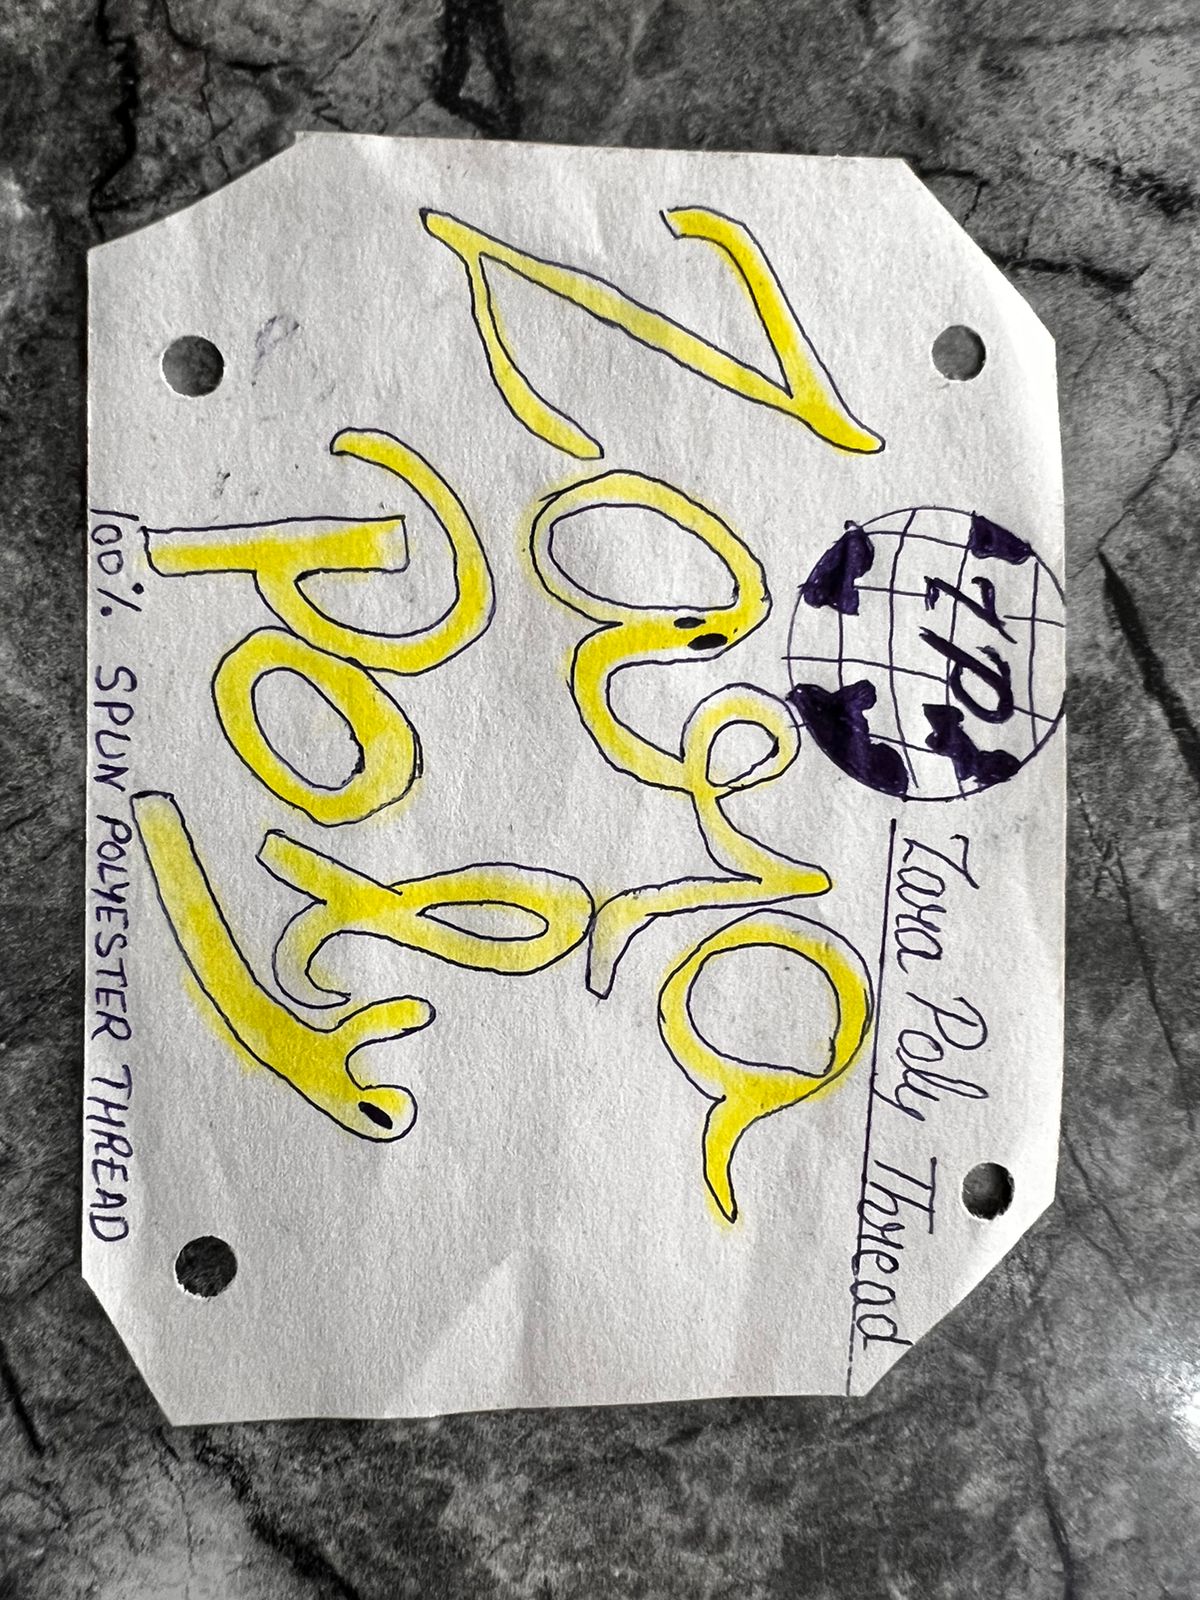 ZP
Zara Poly Thread
Zara
Poly
100% SPUN POLYESTER THREAD